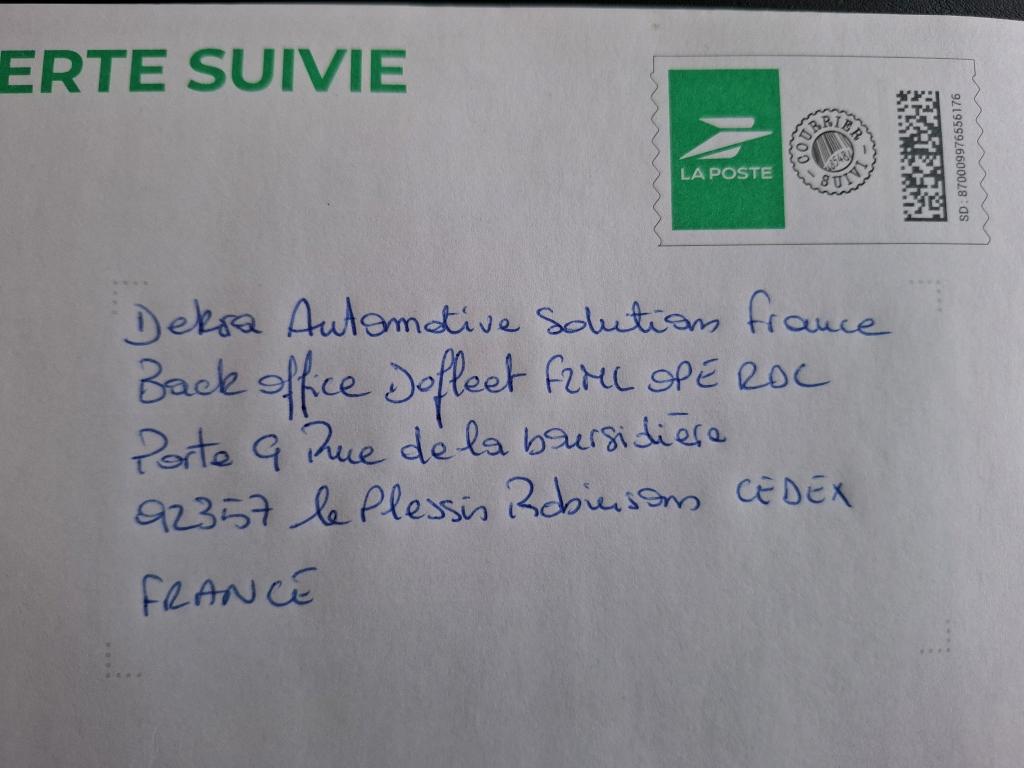 ERTE SUIVIE
LA POSTE
COURRIER SUIVI
SD : 8700099976556176
Dekra Automotive Solutions France
Back office Dofleet F2ML OPE RDC
Porte 9 Rue de la boursidière
92357 le Plessis Robinsons CEDEX
FRANCE